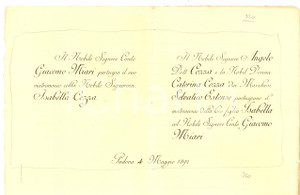 Il Nobile Signore Conte
Giacomo Miari partecipa il suo
matrimonio colla Nobile Signorina
Isabella Cezza
Il Nobile Signore Angelo
Dott. Cezza e la Nobil Donna
Caterina Cezza Dei Marchesi
Selvatico Estense partecipano il
matrimonio della loro figlia Isabella
col Nobile Signore Conte Giacomo
Miari
Padova 4 Maggio 1891